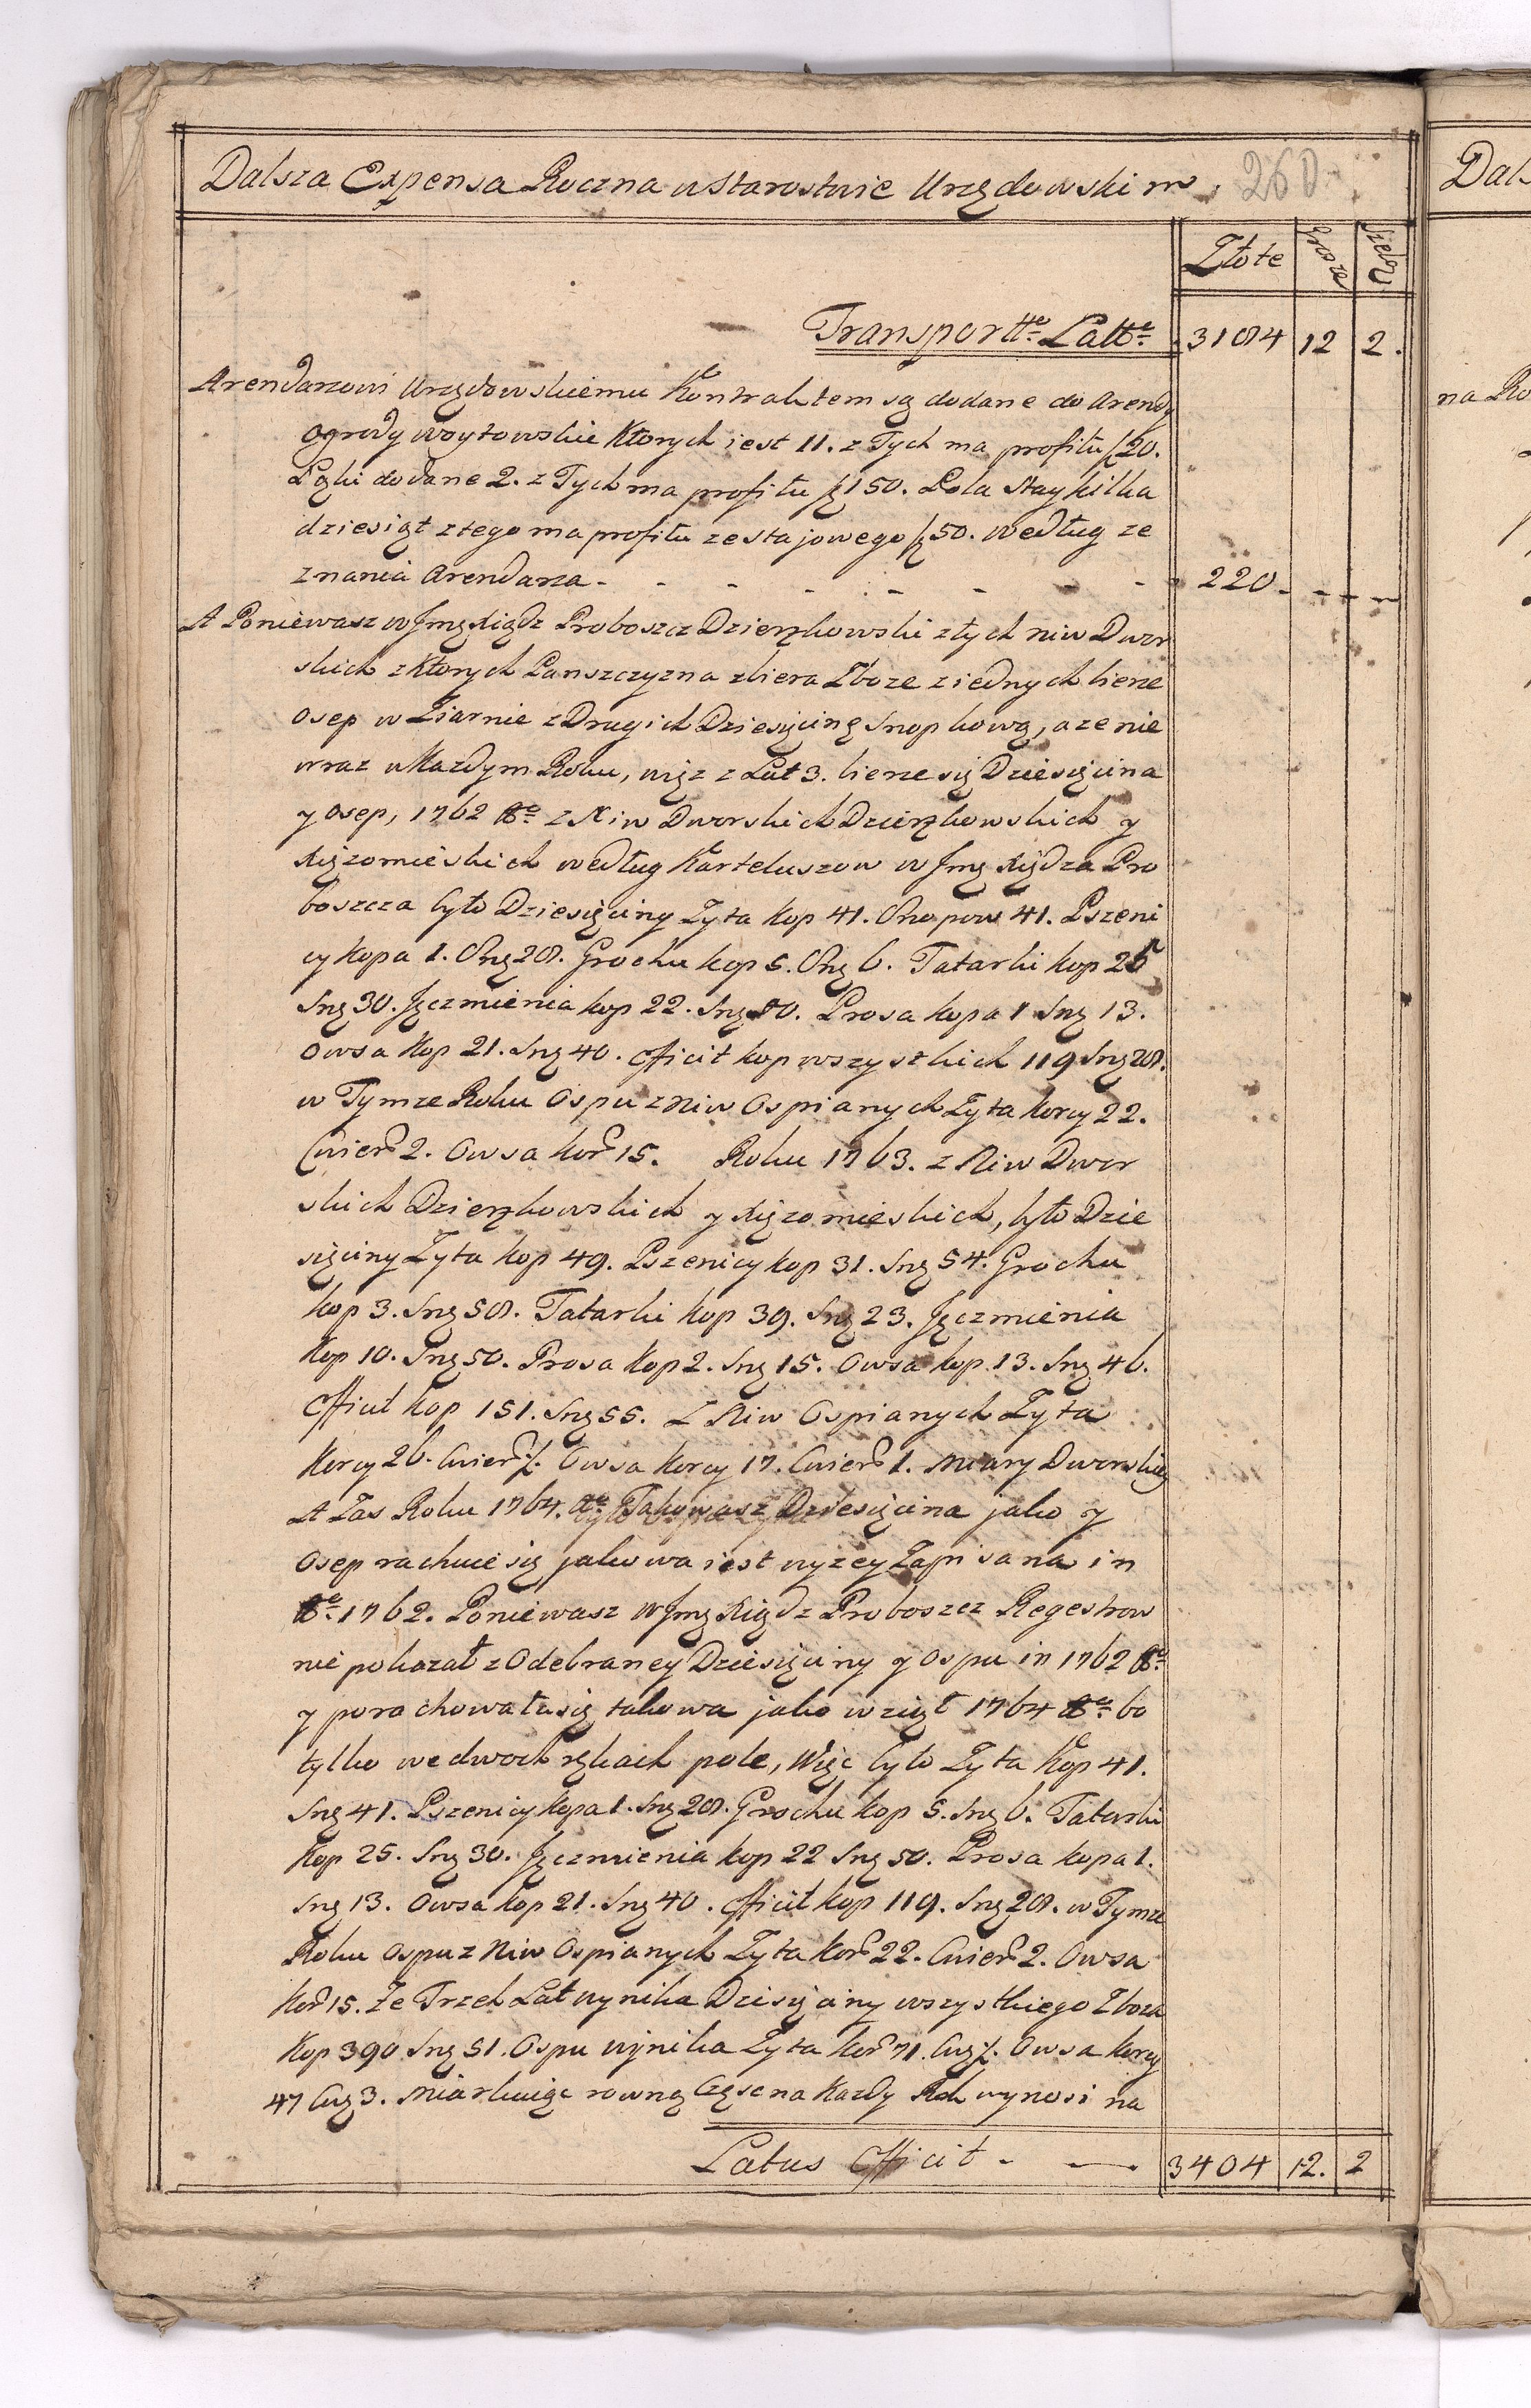 Dalsza Expensa Roczna w Starostwie Urzędowskim. 260
Złote Grosze Szelą
Transportte Latte 3184 12 2.
Arendarzowi Urzędowskiemu Kontraktem są dodane do Arendy
Ogrody woytowskie Ktorych iest 11. z Tych ma profitu f 20.
Łąki dodane 2. z Tych ma profitu f 150. Pola Stay kilka
dziesiąt z tego ma profitu ze stajowego f 50. według ze
znania Arendarza - - - - - - - 220 - - -
A Poniewasz w Jmę Xiądz Proboszcz Dzierzkowski z tych niw Dwor
skich z Ktorych Panszczyzna zbiera Zboze z iednych bierze
Osep w Ziarnie z Drugich Dziesięcinę Snopkową, a ze nie
wraz w Kazdym Roku, więz z Lat 3. bierze się Dziesięcina
y Osep, 1762 Ao z Niw Dworskich Dzierzkowskich y
Xięzomieskich według Karteluszow w Jmę Xiędza Pro
boszcza było Dziesięciny Zyta Kop 41. Snopow 41. Pszeni
cy Kopa 1. Sng 28. Grochu kop 5. Sng 6. Tatarki kop 25
Sng 30. Jęczmienia kop 22. Sng 50. Prosa kopa 1 Sng 13.
Owsa Kop 21. Sng 40. Efficit kop wszystkich 119 Sng 28.
w Tymze Roku Ospu z Niw Ospianych Zyta korcy 22.
Cwierc 2. Owsa kor 15. Roku 1763. z Niw Dwor
skich Dzierzkowskich y Xięzomieskich, było Dzie
sięciny Zyta kop 49. Pszenicy kop 31. Sng 54. Grochu
kop 3. Sng 58. Tatarki kop 39. Sng 23. Jęczmienia
Kop 10. Sng 50. Prosa kop 2. Sng 15. Owsa kop 13. Sng 46.
Efficit kop 151. Sng 55. Z Niw Ospianych Zyta
Korcy 26. Cwierc ½. Owsa Korcy 17. Cwierc 1. Miary Dworskiey
A Zas Roku 1764. Ao Takowasz Dziesięcina jako y
Osep rachuie się jakowa iest wyzey Zapisana in
Ao 1762. Poniewasz W Jmę Xiądz Proboszcz Regestrow
nie pokazał z Odebraney Dziesięciny y Ospu in 1762 Ao
y porachowała się takowa jako wziął 1764 Ao bo
tylko we dwoch rękach pole, Więc było Zyta Kop 41.
Sng 41. Pszenicy kopa 1. Sng 28. Grochu kop 5. Sng 6. Tatarki
Kop 25. Sng 30. Jęczmienia kop 22 Sng 50. Prosa kopa 1.
Sng 13. Owsa kop 21. Sng 40. Efficit kop 119. Sng 28. w Tymze
Roku Ospu z Niw Ospianych Zyta kor 22. Cwierc 2. Owsa
kor 15. Ze Trzech Lat wynika Dziesięciny wszystkiego Zboza
Kop 390 Sng 51. Ospu wynika Zyta kor 71. Cwg ½. Owsa korcy
47 Cwg 3. Miarkuiąc rowną Częsc na Kazdy Rok wynosi na
Latus Efficit - — . 3404 12. 2
Dals
na Ro